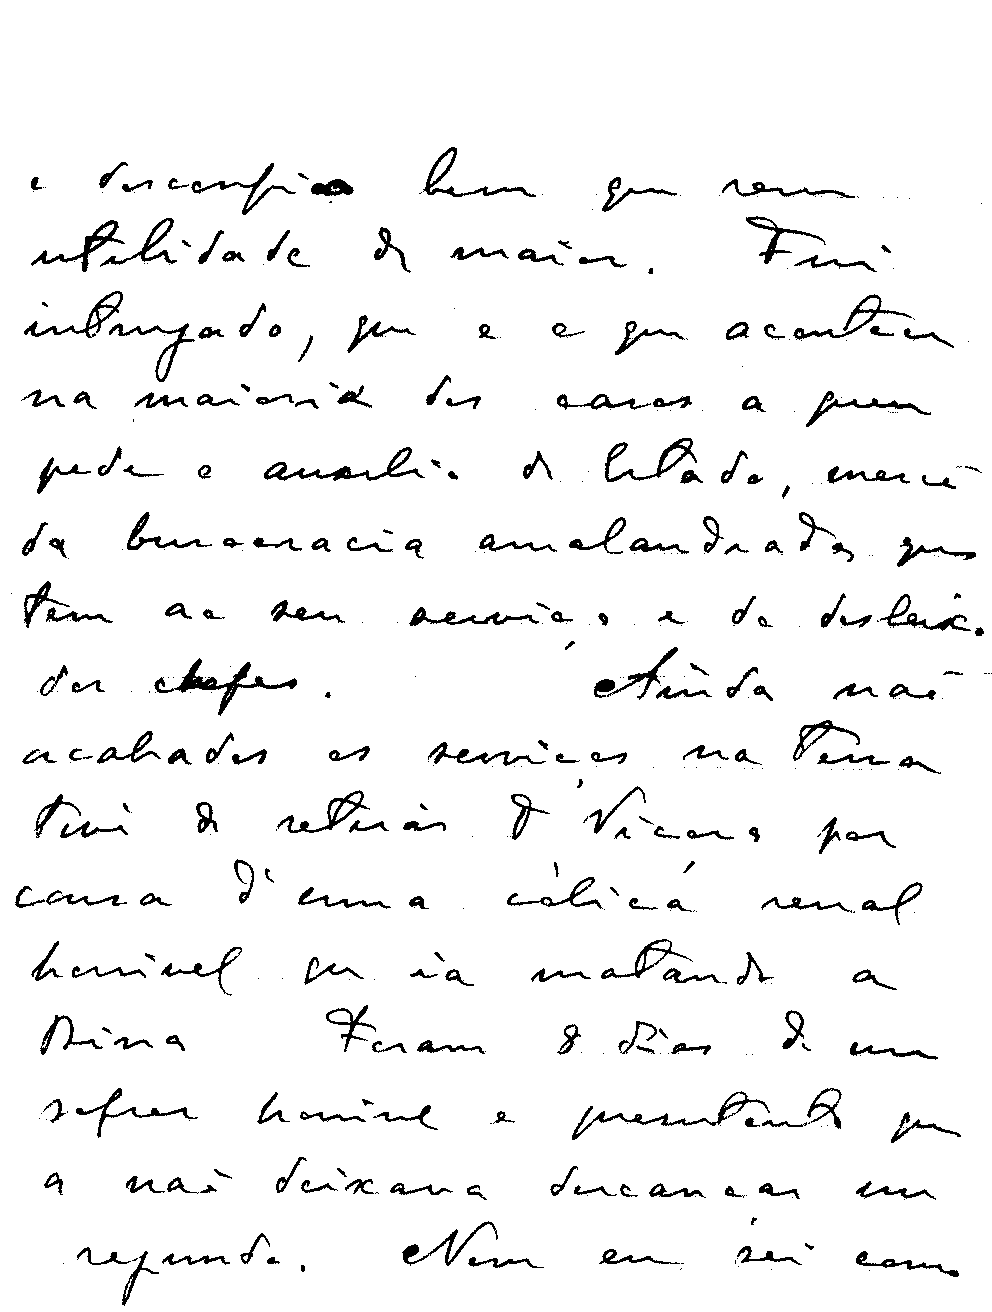 e desconfio bem que sem
utilidade de maior. Fui
intrujado, que é o que acontece
na maioria dos casos a quem
pede o auxilio do Estado, mercê
da burocracia amalandrada que
tem ao seu serviço e do desleixo
dos chefes. Ainda não
acabados os serviços na Terra
tive de retirar p.ª por
causa d'uma cólica renal
horrivel que ia matando a
Dina Foram 8 dias de um
sofrer horrivel e persistente que
a não deixava descançar um
segundo. Nem eu sei como